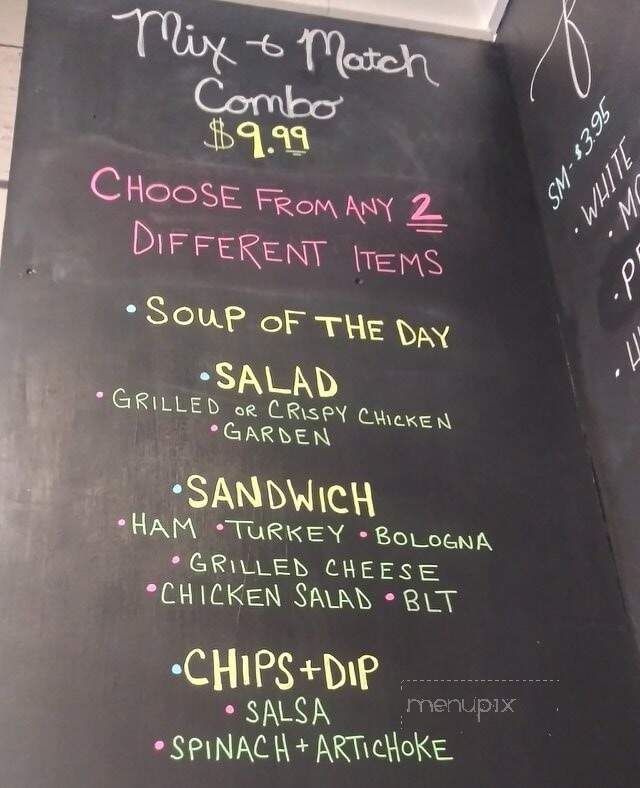 Mix & Match
Combo
$9.99
CHOOSE FROM ANY 2
DIFFERENT ITEMS
• SOUP OF THE DAY
• SALAD
• GRILLED OR CRISPY CHICKEN
• GARDEN
• SANDWICH
• HAM • TURKEY • BOLOGNA
• GRILLED CHEESE
• CHICKEN SALAD • BLT
• CHIPS + DIP
• SALSA
• SPINACH + ARTICHOKE
menupix
SM - $3.95
• WHITE